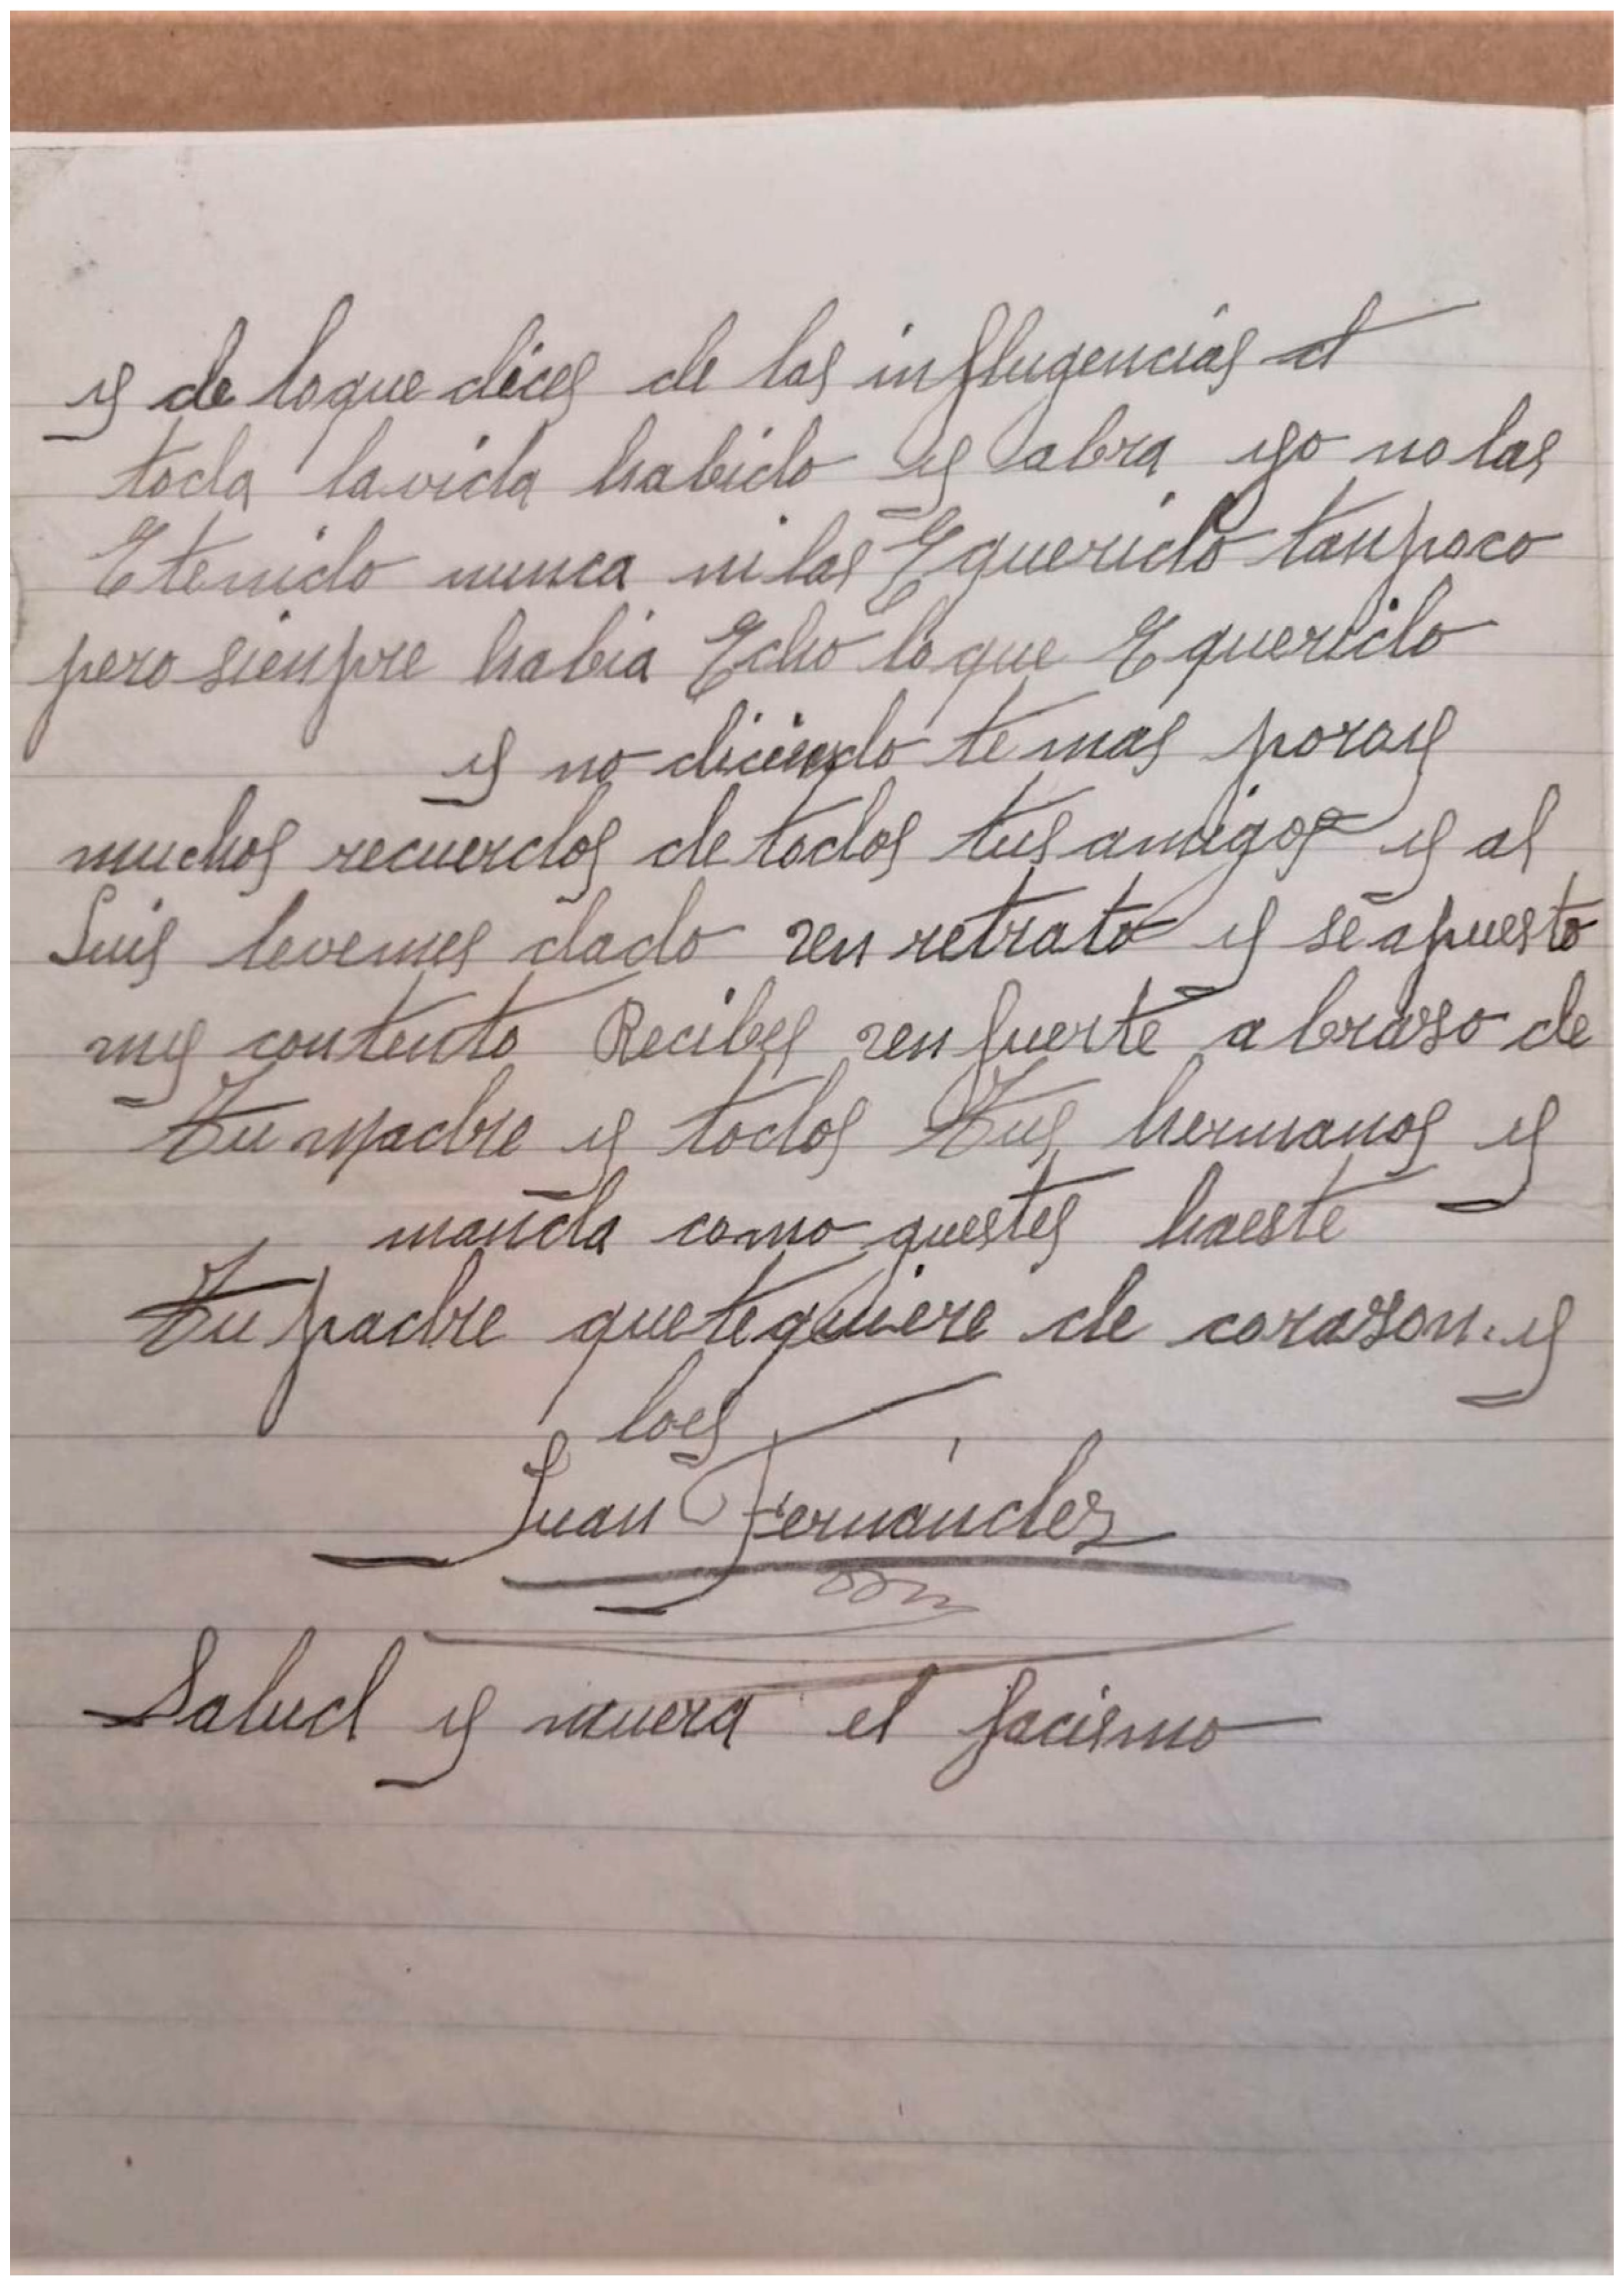 y de loque dices de las influgencias
toda la vida habido y abra yo no las
E tenido nunca ni las E querido tanpoco
pero sienpre habia Echo lo que E querido
y no diciendo te mas poray
muchos recuerdos de todos tus amigos y al
Luis levemes dado un retrato y se apuesto
muy contento Recibes un fuerte abraso de
tu madre y todos tus hermanos y
manda como questes haeste
tu padre que te quiere de corason. y
loes
Juan Fernandez
Salud y muera el facismo